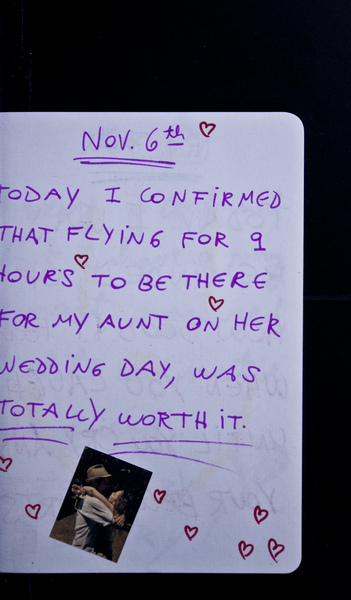 Nov. 6th
TODAY I CONFIRMED
THAT FLYING FOR 9
HOURS TO BE THERE
FOR MY AUNT ON HER
WEDDING DAY, WAS
TOTALLY WORTH IT.